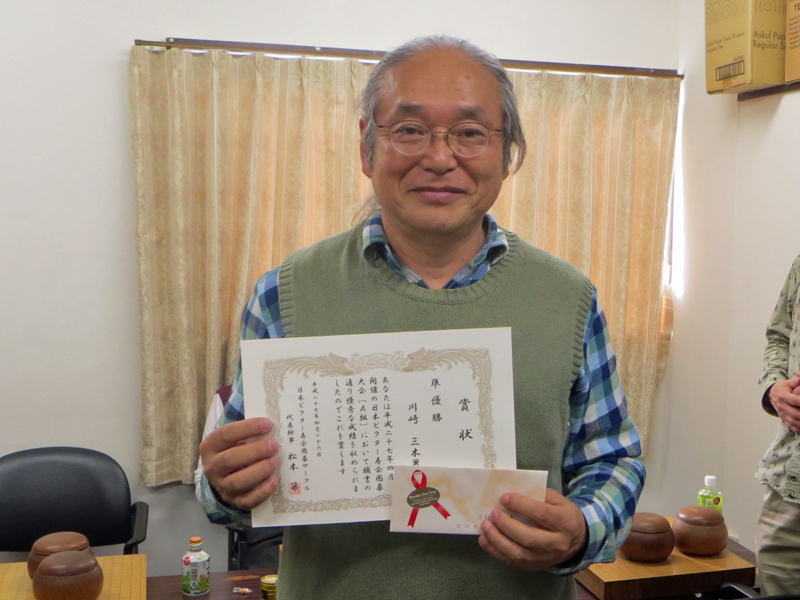 賞状
準優勝
川崎 三木
あなたは平成二十七年四月
開催の日本ビクター寿会囲碁
大会【A組】において頭書の
通り優秀な成績を収められま
したのでこれを賞します
平成二十七年四月二十六日
日本ビクター寿会囲碁サークル
代表幹事 松本
Askul Pap
Regular S